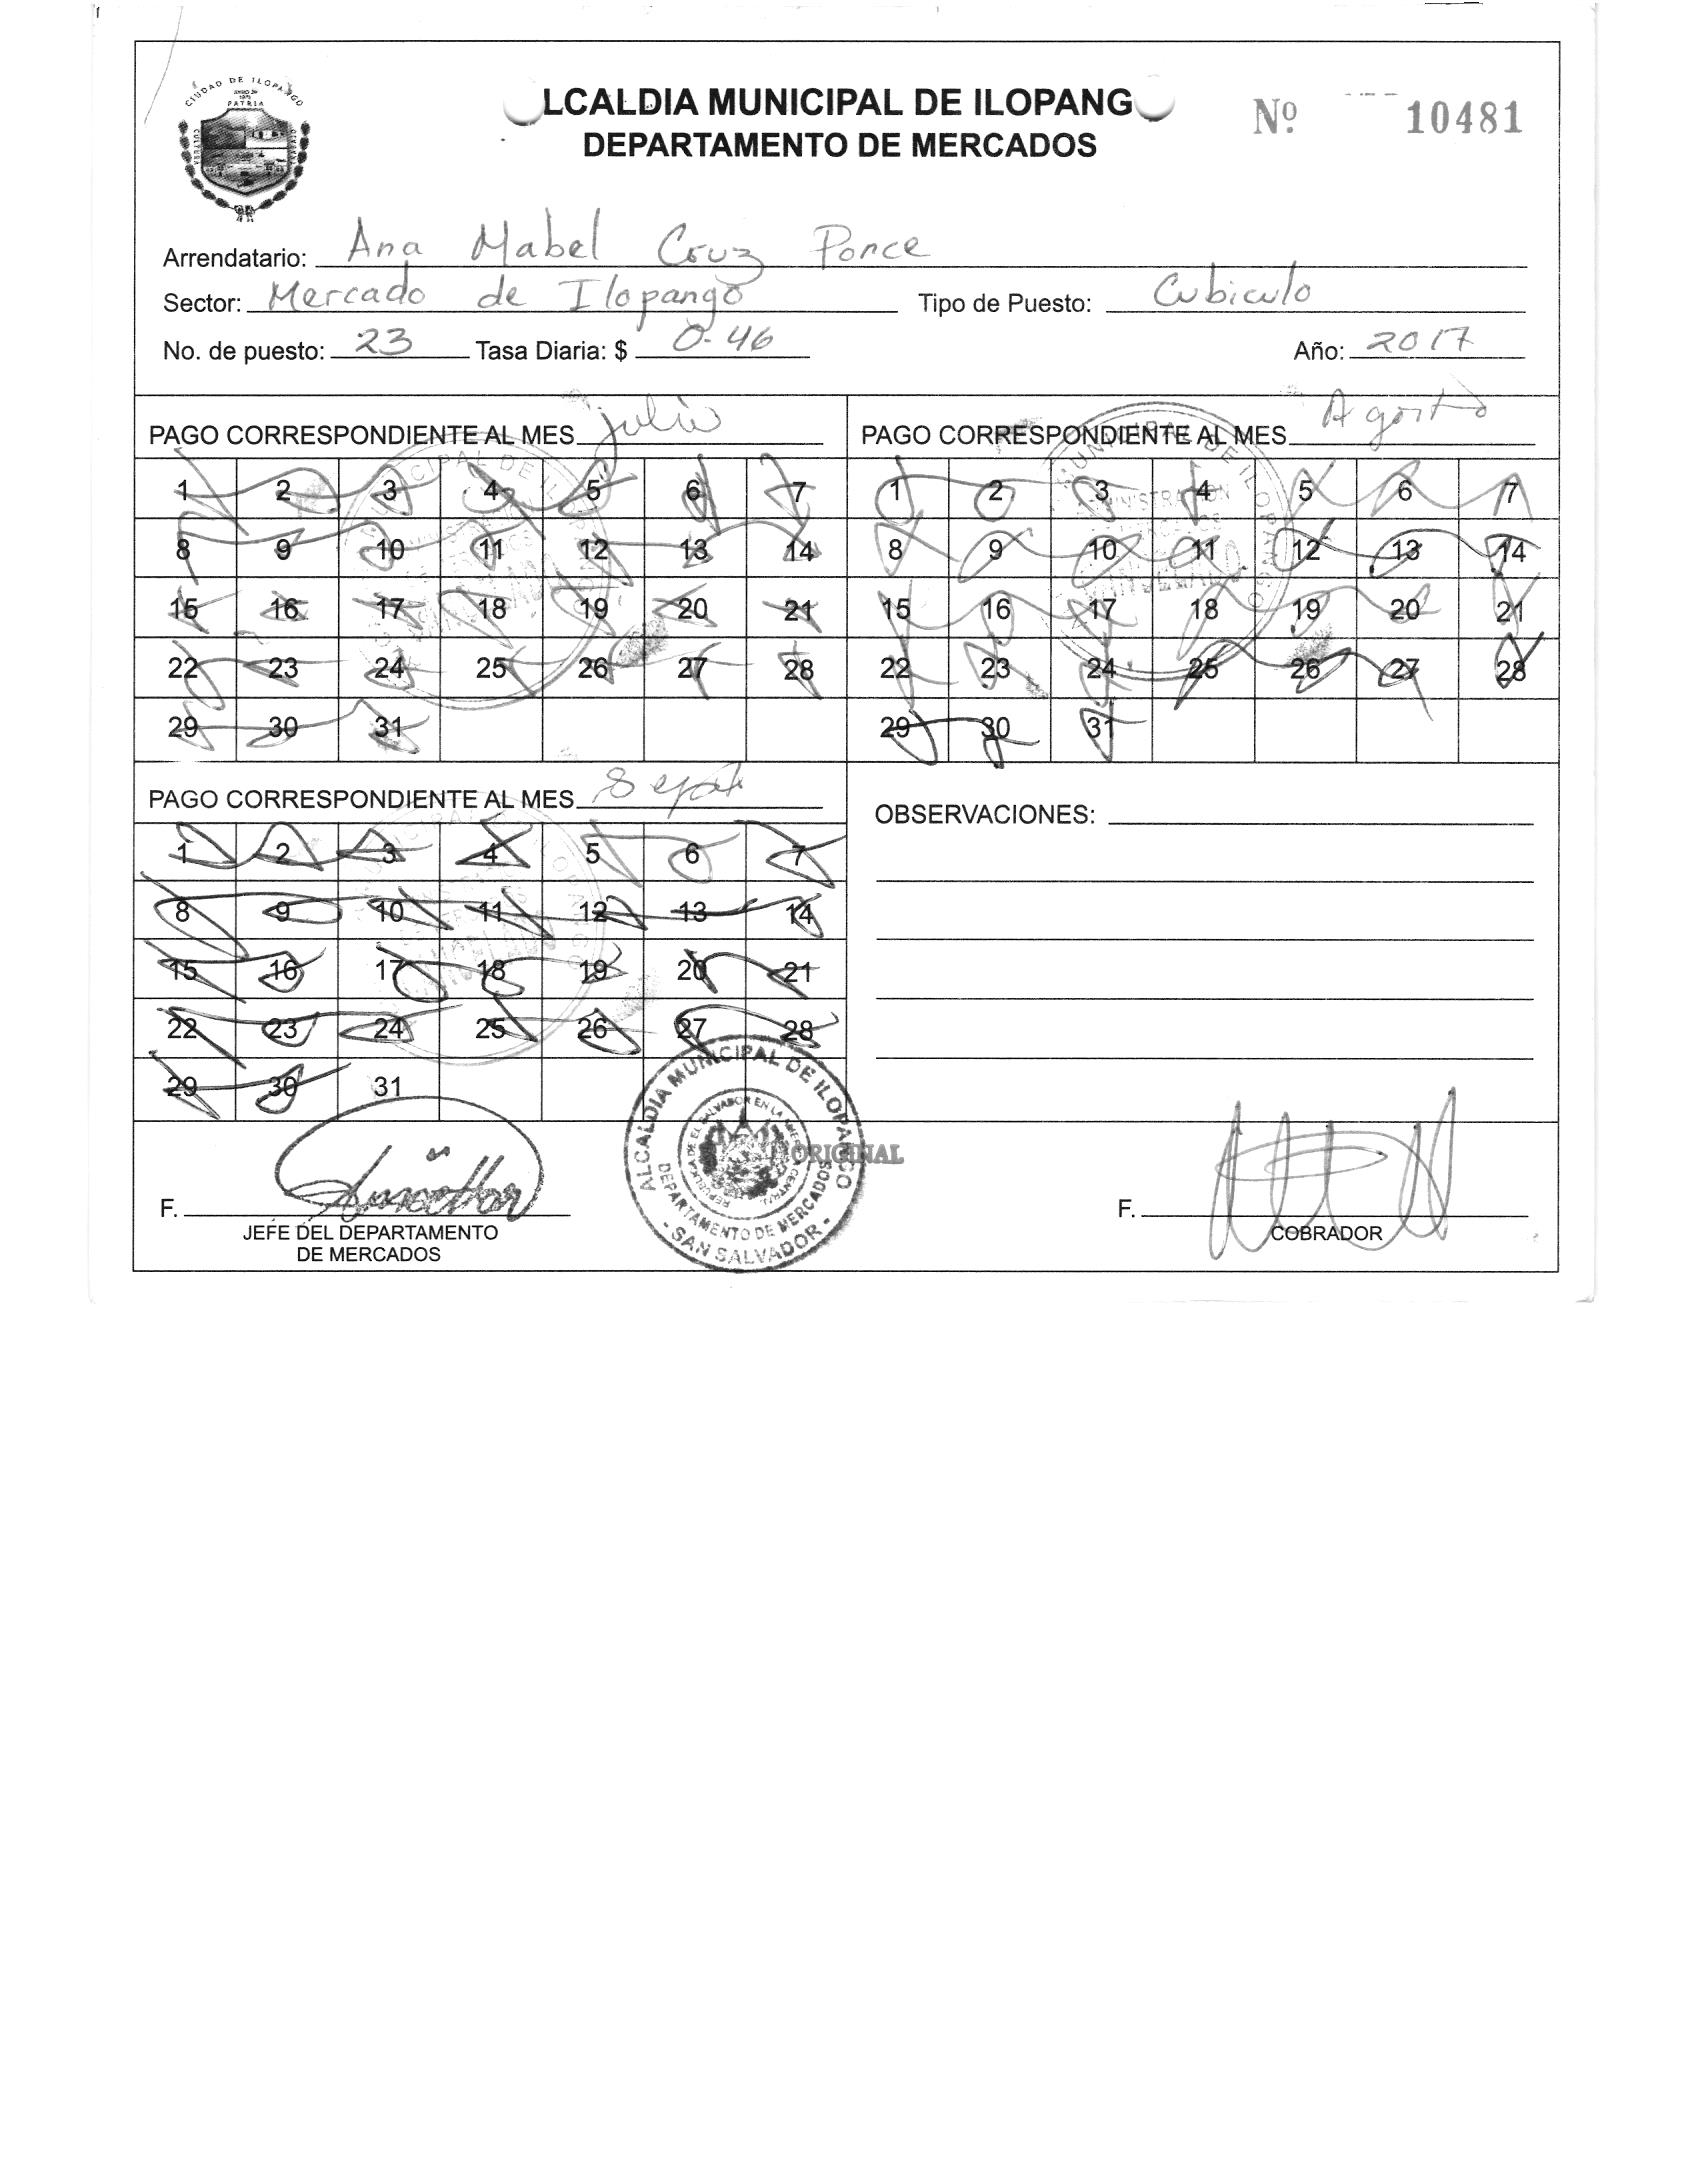 CIUDAD DE ILOPANGO
PATRIA
LCALDIA MUNICIPAL DE ILOPANG
DEPARTAMENTO DE MERCADOS
Nº 10481
Arrendatario: Ana Mabel Cruz Ponce
Sector: Mercado de Ilopango Tipo de Puesto: Cubiculo
No. de puesto: 23 Tasa Diaria: $ 0.46 Año: 2017
PAGO CORRESPONDIENTE AL MES julio
1 2 3 4 5 6 7
8 9 10 11 12 13 14
15 16 17 18 19 20 21
22 23 24 25 26 27 28
29 30 31
PAGO CORRESPONDIENTE AL MES Agosto
1 2 3 4 5 6 7
8 9 10 11 12 13 14
15 16 17 18 19 20 21
22 23 24 25 26 27 28
29 30 31
PAGO CORRESPONDIENTE AL MES
1 2 3 4 5 6 7
8 9 10 11 12 13 14
15 16 17 18 19 20 21
22 23 24 25 26 27 28
29 30 31
OBSERVACIONES:
ALCALDIA MUNICIPAL DE ILOPANGO
REPUBLICA DE EL SALVADOR EN LA AMERICA CENTRAL
DEPARTAMENTO DE MERCADOS
- SAN SALVADOR -
ORIGINAL
F.
JEFE DEL DEPARTAMENTO
DE MERCADOS
F.
COBRADOR